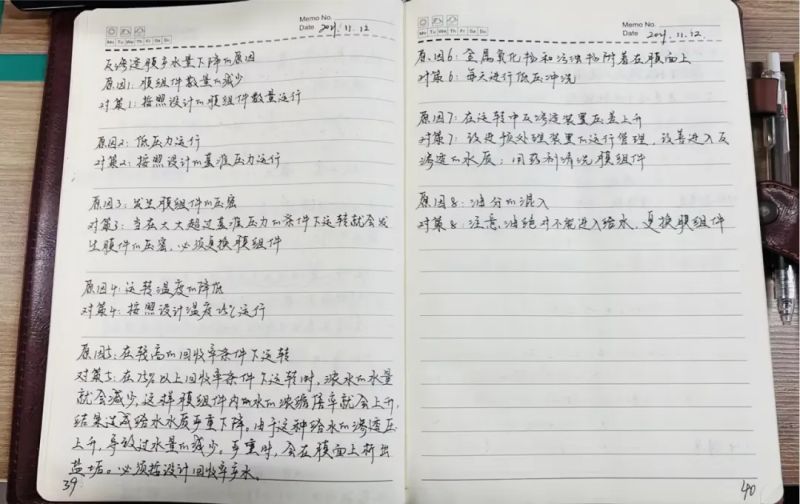 Memo No.
Mo Tu We Th Fr Sa Su
Date 2021.11.12
反渗透膜产水量下降的原因
原因1:膜组件数量的减少
对策1:按照设计的膜组件数量运行
原因2:低压力运行
对策2:按照设计的基准压力运行
原因3:发生膜组件的压密
对策3:当在大大超过基准压力的条件下运转就会发
生膜件的压密,必须更换膜组件
原因4:运转温度的降低
对策4:按照设计温度25℃运行
原因5:在较高的回收率条件下运转
对策5:在75%以上回收率条件下运转时,浓水的水量
就会减少,这样膜组件内的水的浓缩倍率就会上升,
结果造成给水水质严重下降。由于这种给水的渗透压
上升,导致过水量的减少。严重时,会在膜面上析出
盐垢。必须按设计回收率产水。
39
Memo No.
Mo Tu We Th Fr Sa Su
Date 2021.11.12
原因6:金属氧化物和污浊物附着在膜面上
对策6:每天进行低压冲洗
原因7:在运转中反渗透装置压差上升
对策7:改进预处理装置的运行管理,改善进入反
渗透的水质;用药剂清洗膜组件
原因8:油分的混入
对策8:注意,油绝对不能进入给水,更换膜组件
40